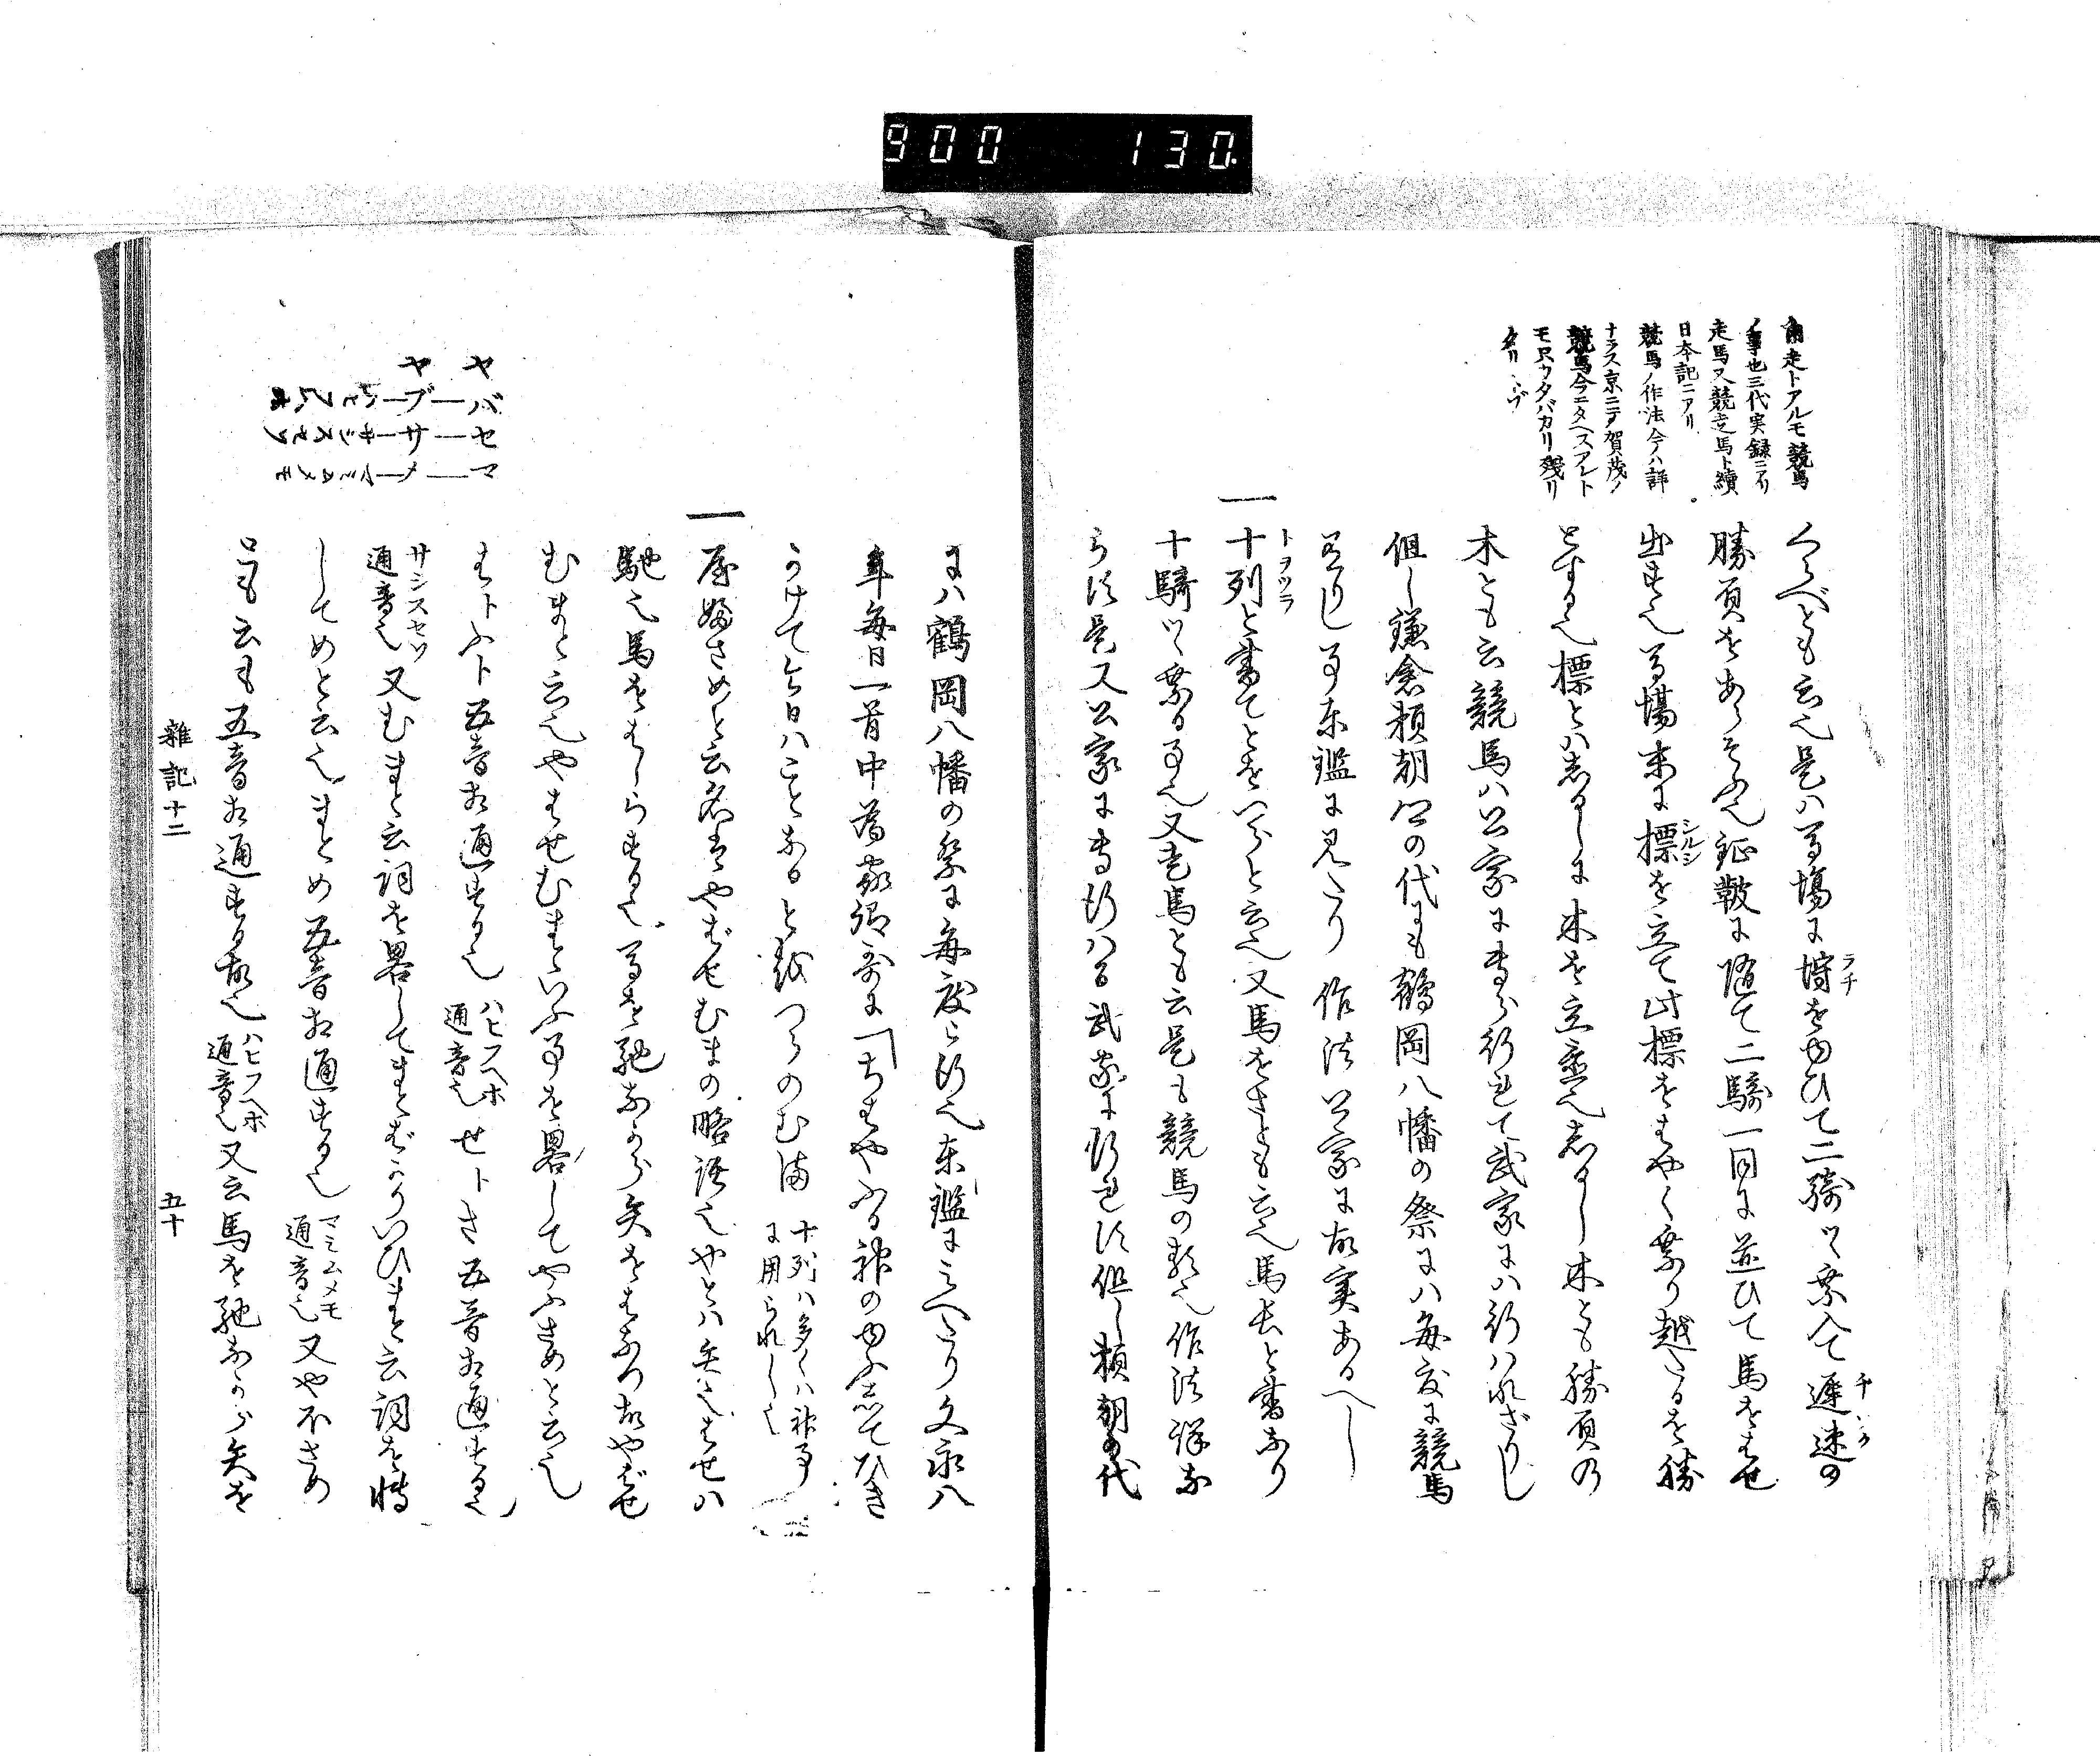 900 130.
走トアルモ競馬
ノ事也三代実録ニアリ
走馬又競走馬ト續
日本記ニアリ
競馬ノ作法今ハ詳
ナラス京ニテ賀茂ノ
競馬今ニタヘスアレト
モ只ワタバカリ残リ
タリ
くらべとも云也是ハ馬場に埒をゆひて二騎ツヽ乗入て遅速の
勝負をあらそふ也鉦鼓に随て二騎一同に並ひて馬をはせ
出す也馬場末に標を立て此標をはやく乗り越たるを勝
とする也標とハしるしに木を立置也しるし木とも勝負の
木とも云競馬ハ公家に専ら行れて武家にハ行ハれざりし
但し鎌倉頼朝公の代にも鶴岡八幡の祭にハ毎度に競馬
ありし事東鑑に見たり作法公家に故実あるへし
十列と書てとをつらと云也又馬をさとも云也馬長と書なり
十騎ツヽ乗る事也又走馬とも云是も競馬の類也作法詳な
らす是又公家に専行ハる武家に行れす但し頼朝の代
にハ鶴岡八幡の祭に毎度被行也東鑑にみへたり文永八
年毎日一首中為家卿哥に「ちはやふる神のゆふしてひき
かけてけふハことなると越つらのむ満
十列ハ多くハ神事
に用られし也
屋婦さめと云名はやばせむまの略語也やとハ矢也はせハ
馳也馬をはしらする也馬を馳ながら矢をはなつ故やばせ
むまと云也やはせむまといふ事を畧してやふさめと云也
はトふト五音相通する也
ハヒフヘホ
通音也
せトさ五音相通する也
サシスセソ
通音也
又むまと云詞を畧してまとばかりいひまと云詞を轉
してめと云也まとめ五音相通する也
マミムメモ
通音也
又やぶさめ
とも云も五音相通する故也
ハヒフヘホ
通音也
又云馬を馳ながら矢を
ヤバセマ
ヤブサメ
雜記十二
五十